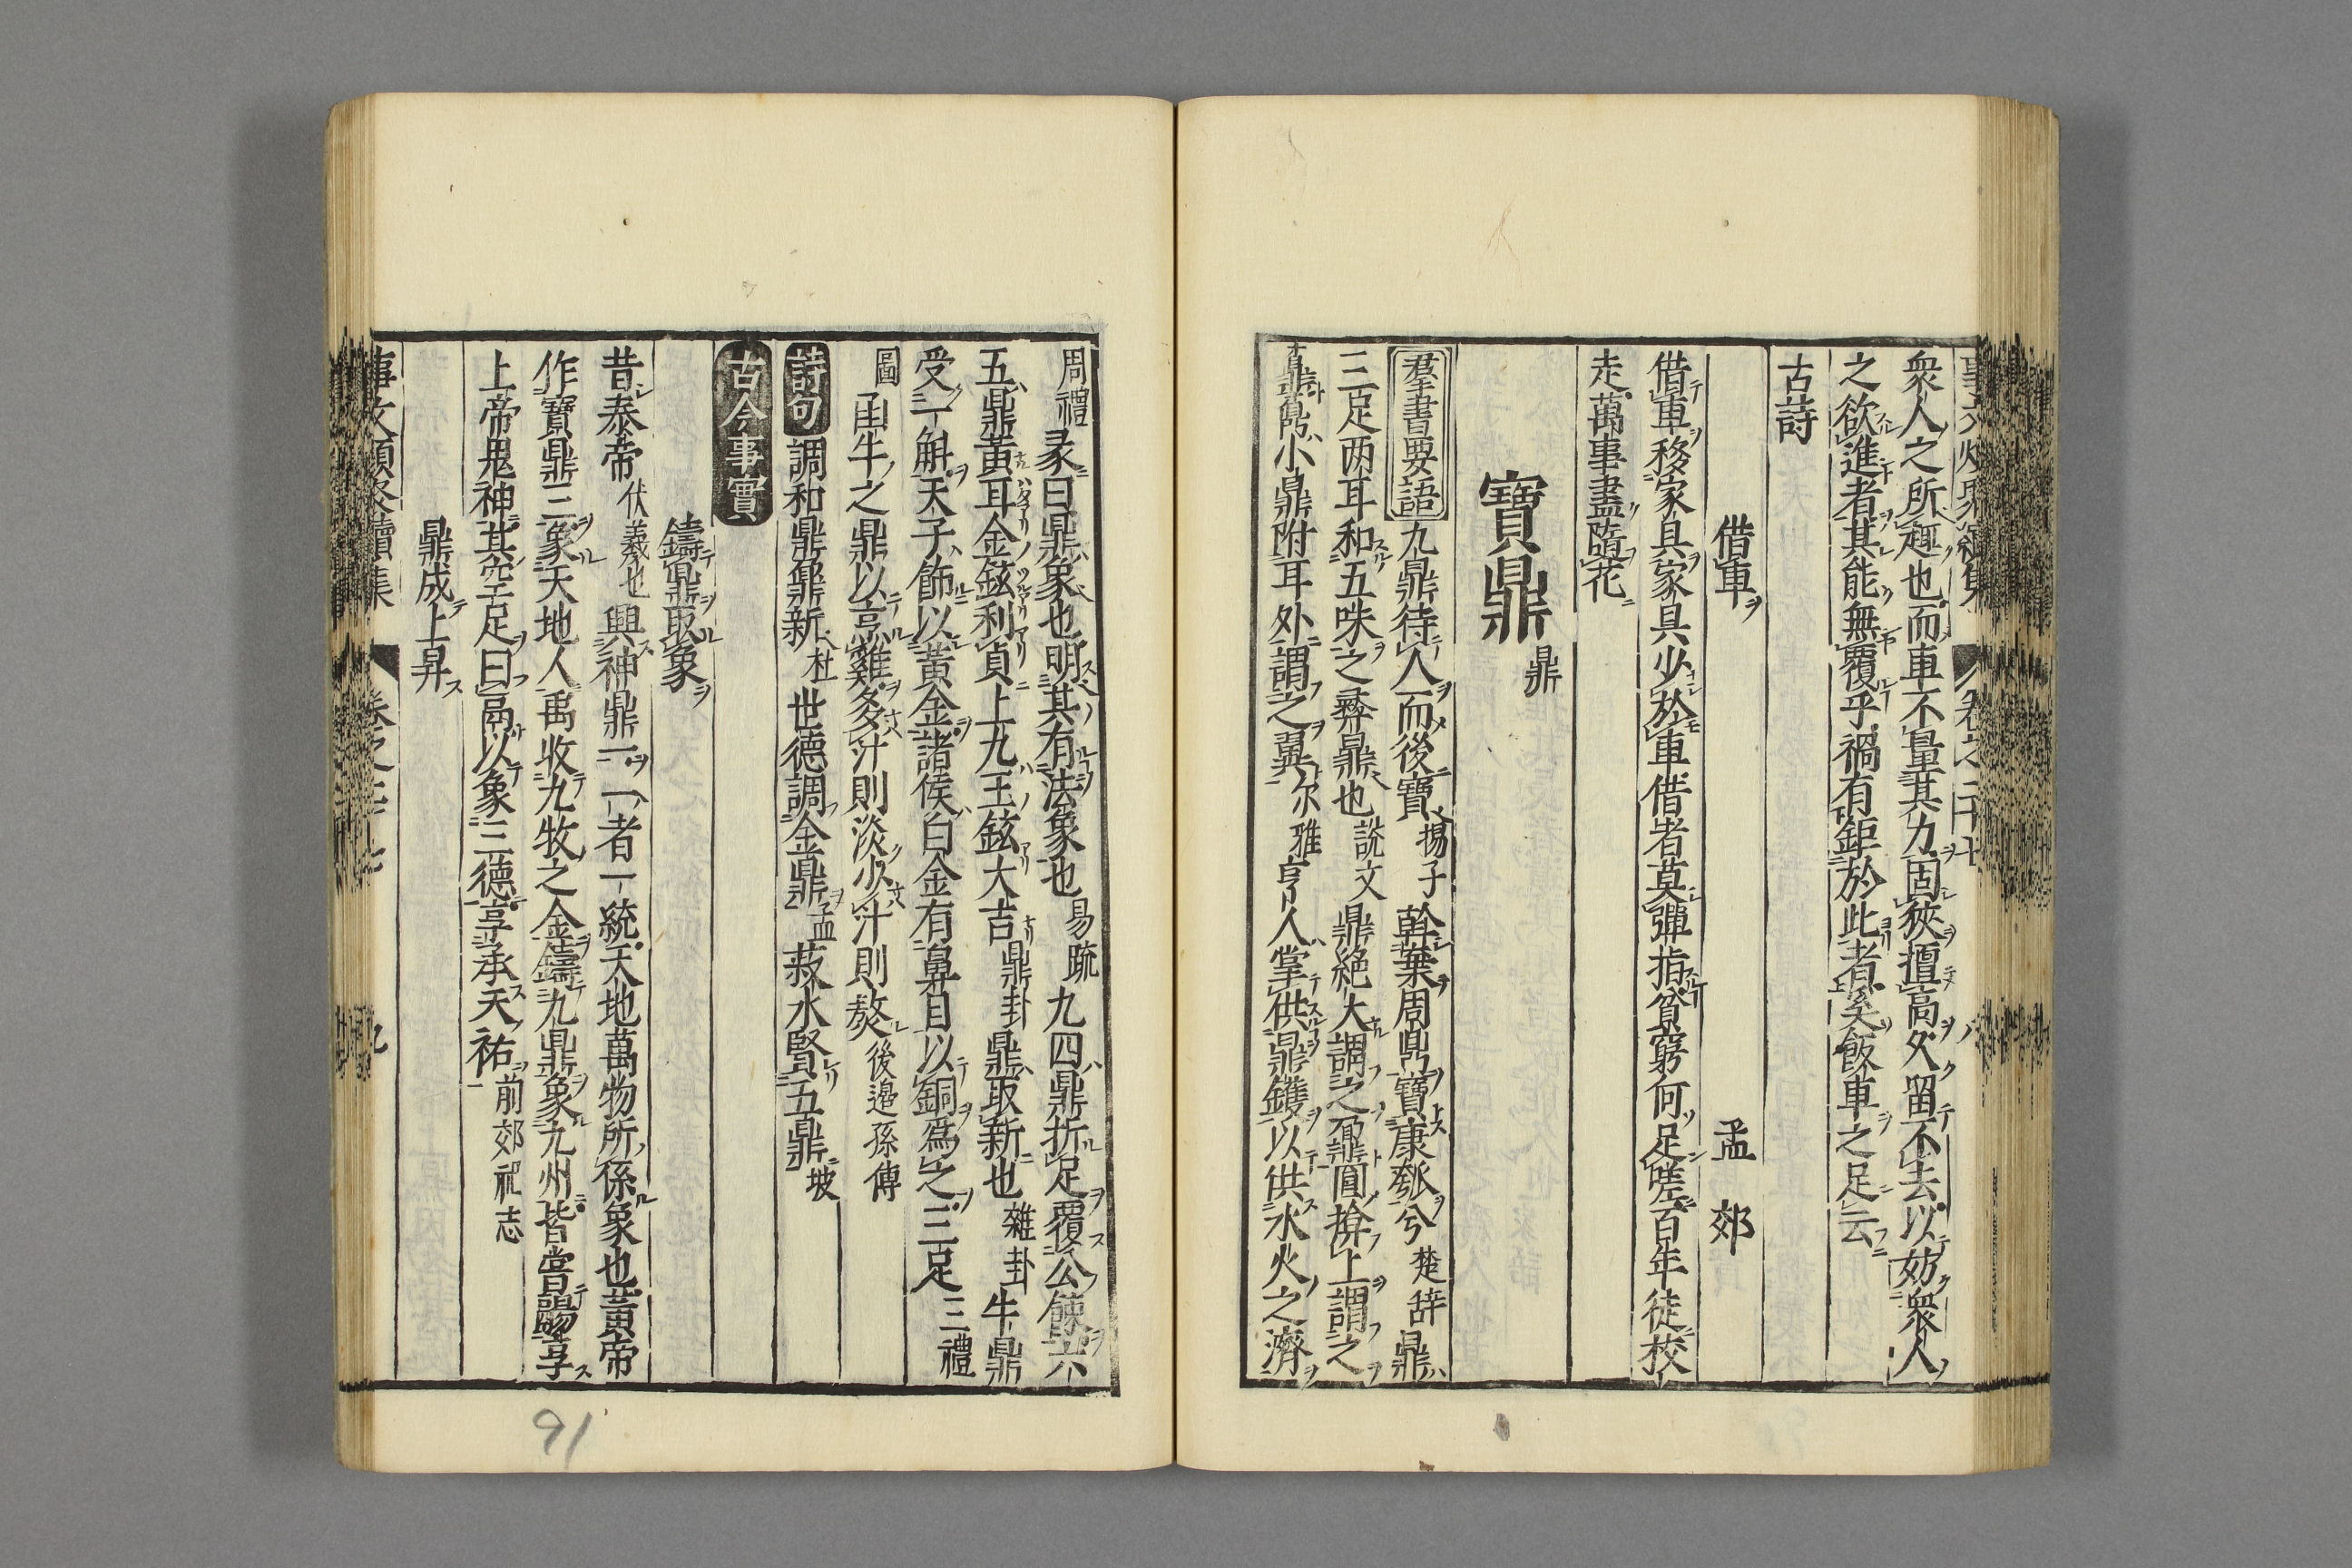 衆人之所趣也而車不量其力固狹擅高久留不去以妨衆人
之欲進者其能無覆乎禍有鉅於此者奚飯車之足云
古詩
借車 孟郊
借車移家具家具少於車借者莫彈指貧窮何足嗟百年徒校
走萬事盡隨花
寶鼎 鼎
羣書要語 九鼎待人而後寶 揚子 斡棄周鼎寶康瓠兮 楚辞 鼎
三足两耳和五味之彝鼎也 說文 鼎絶大謂之鼐圜揜上謂之
鼒 小鼎附耳外謂之翼 尔雅 亨人掌供鼎鑊以供水火之濟
周禮 彖曰鼎象也明其有法象也 易疏 九四鼎折足覆公餗六
五鼎黃耳金鉉利貞上九玉鉉大吉 鼎卦 鼎取新也 雜卦 牛鼎
受一斛天子飾以黃金諸侯白金有鼻目以銅爲之三足 三禮
圖 函牛之鼎以烹雞多汁則淡少汁則熬 後邉孫傳
詩句 調和鼎鼐新 杜 世德調金鼎 孟 菽水賢五鼎 坡
古今事實
鑄鼎取象
昔泰帝 伏羲也 興神鼎一一者一統天地萬物所係象也黃帝
作寶鼎三象天地人禹收九牧之金鑄九鼎象九州皆嘗鬺享
上帝鬼神其空足曰鬲以象三德享承天祐 前郊祀志
鼎成上昇
事文類聚續集 卷之二十七 九